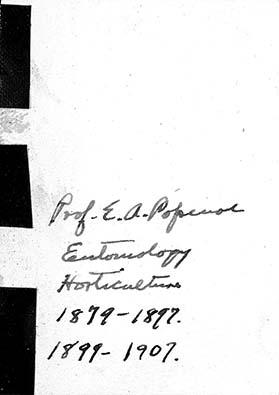 Prof. E. A. Popenoe
Entomology
Horticulture
1879-1897.
1899-1907.